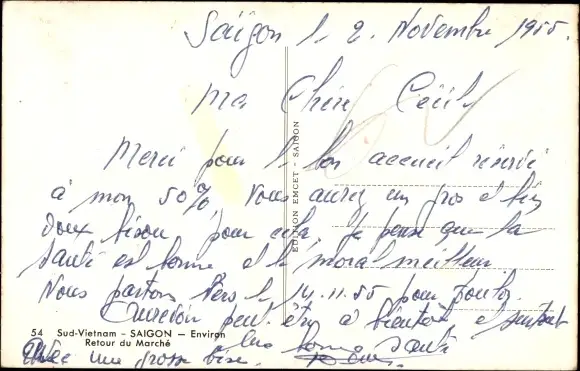 Saïgon le 2. Novembre 1955.
Ma Chère Cécile
Merci pour le bon accueil réservé
à mon 50% Vous aurez un gros et bien
doux bisou pour cela Je pense que la
santé est bonne et le moral meilleur.
Nous partons vers le 14.11.55 pour Toulon.
Aurevoir peut être à bientôt et surtout
bonne santé
Avec une grosse bise.
EDITION EMCET - SAIGON
54 Sud-Vietnam - SAIGON — Environ
Retour du Marché